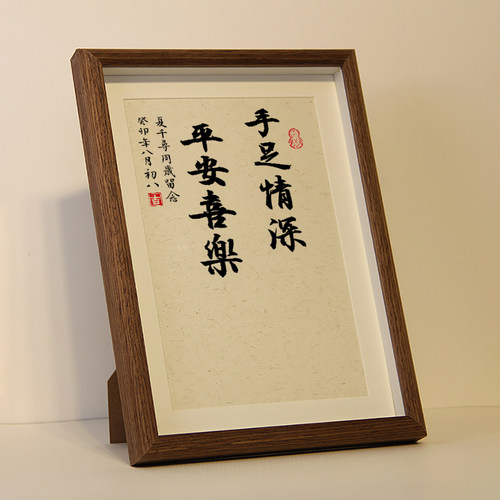 手足情深
平安喜樂
夏千尋周歲留念
癸卯年八月初八
吉